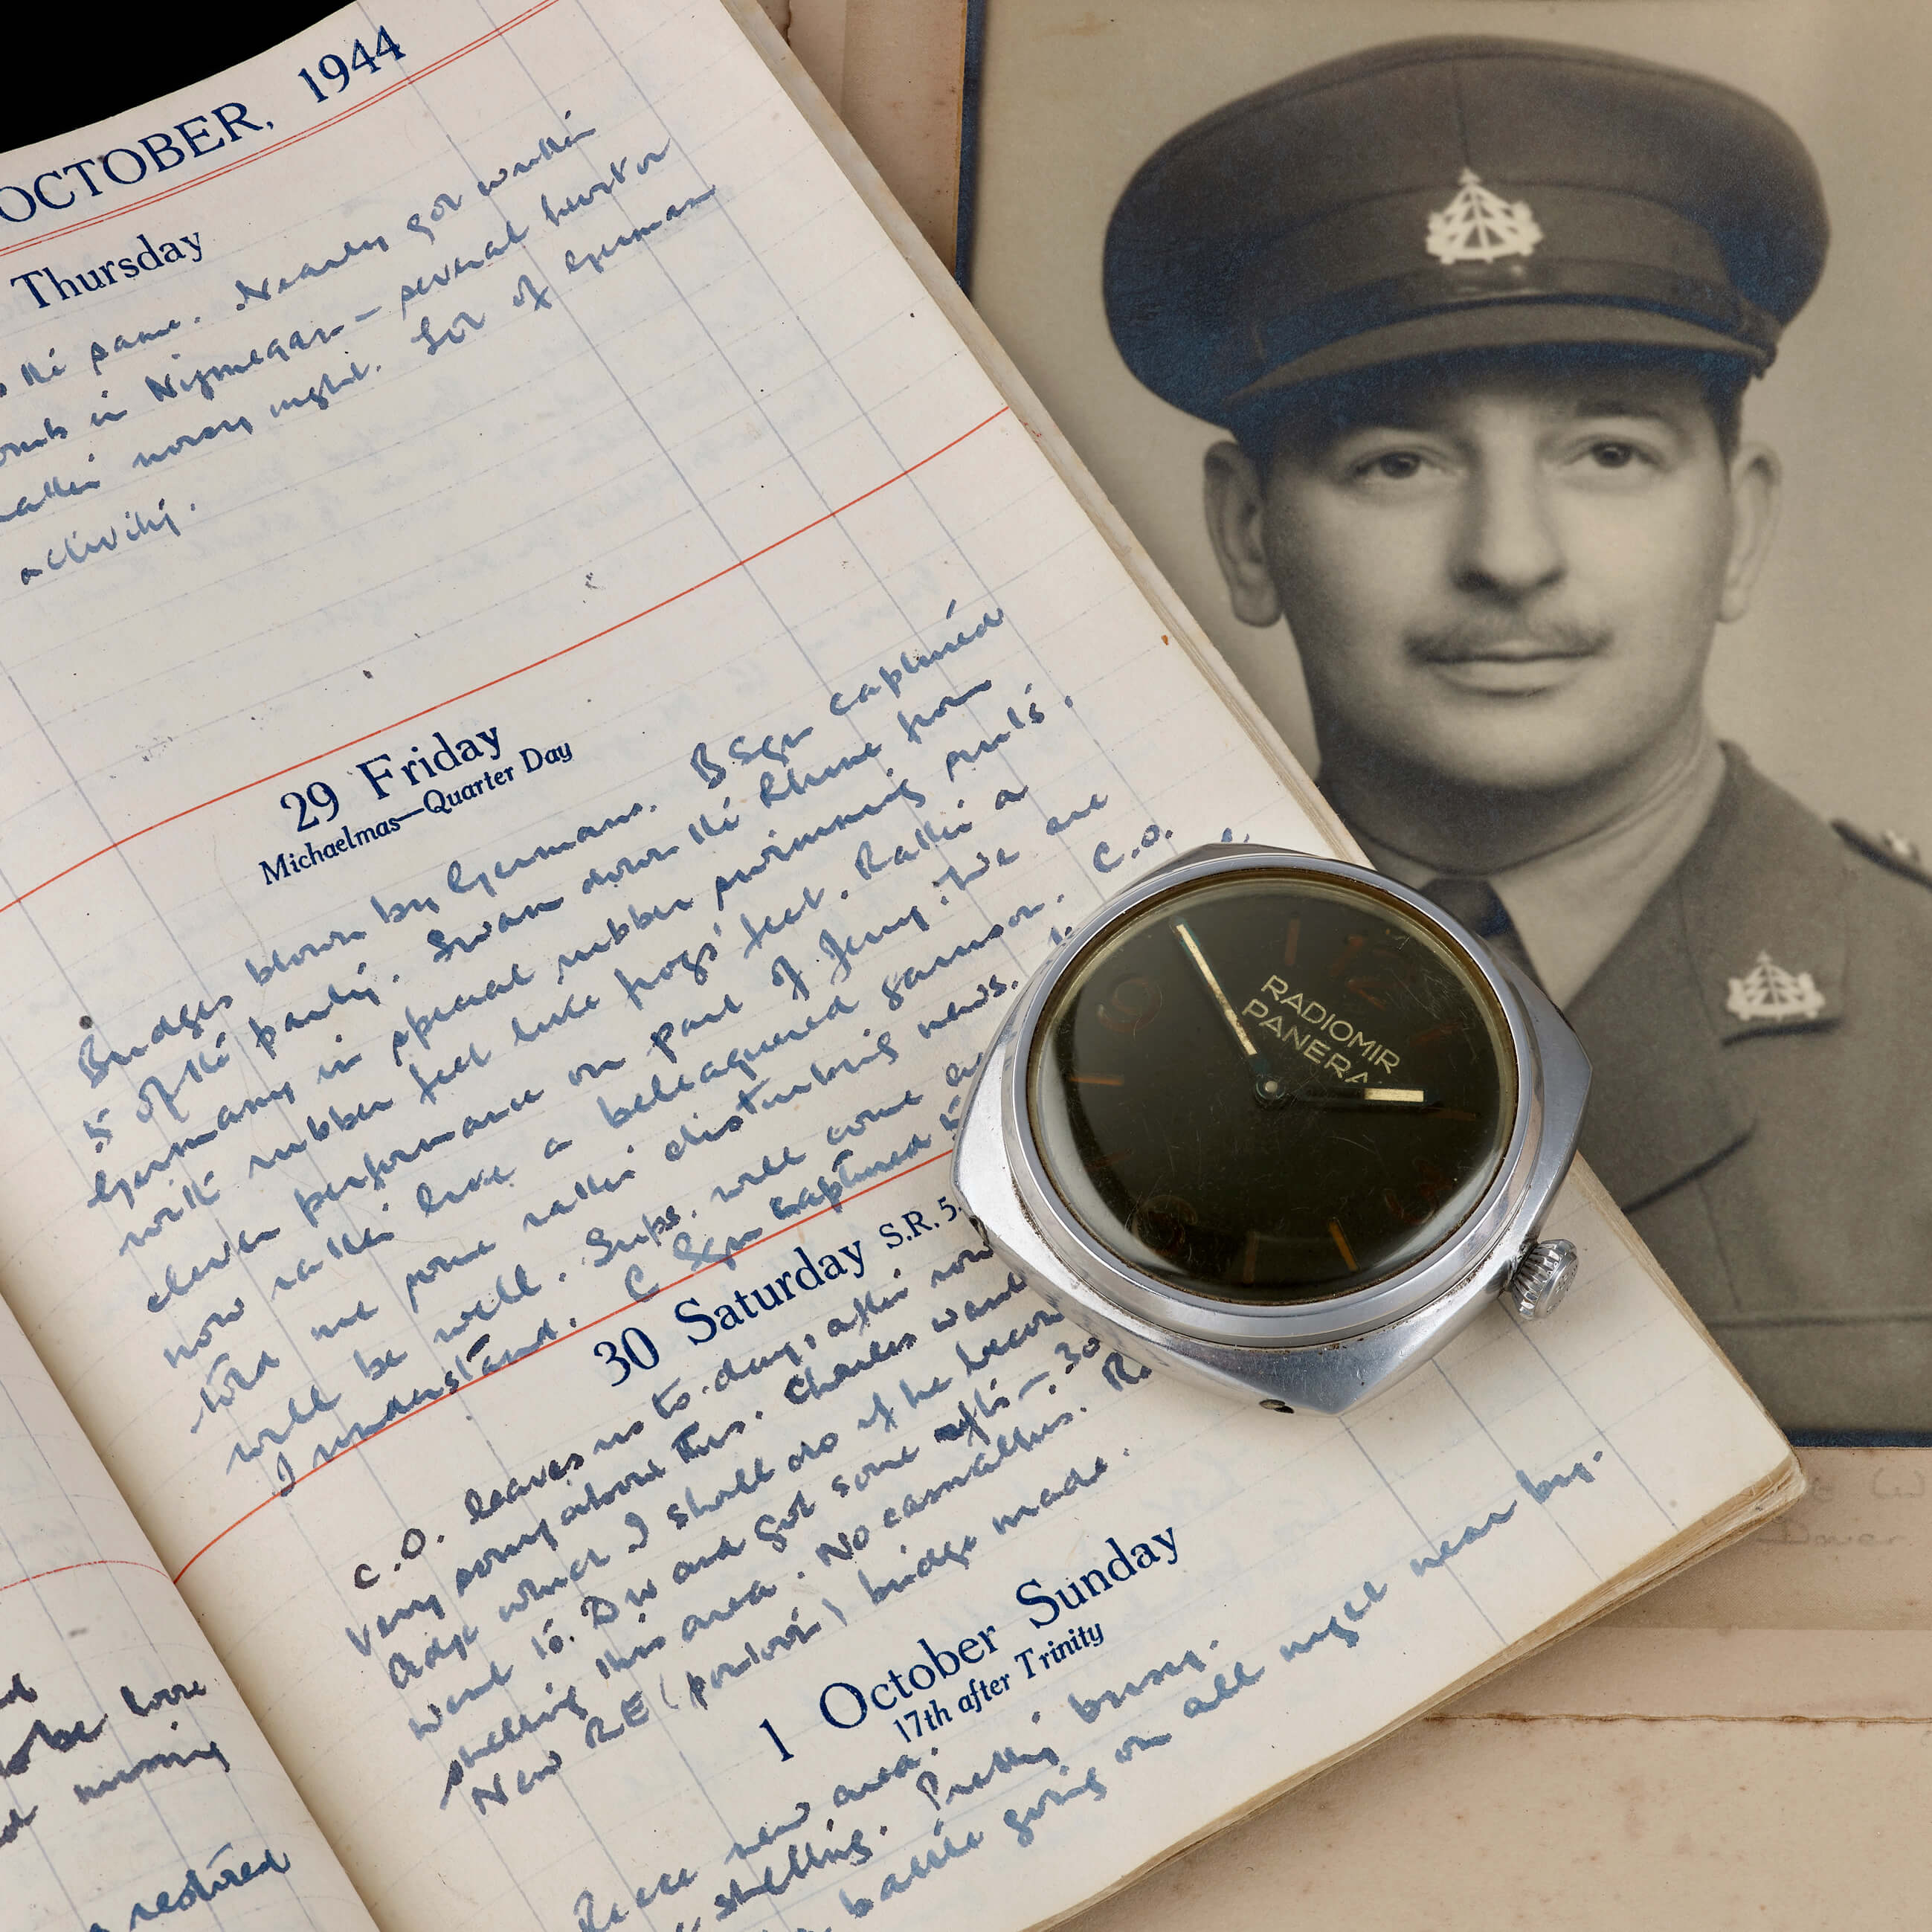 OCTOBER, 1944
Thursday
the same. Nearly got written
in Nijmegan - several hurt or
noisy night. Lot of German
activity.
29 Friday
Michaelmas—Quarter Day
Bridges blown by Germans. B Sqn captured
5 of the party. Swam down the Rhine from
Germany in special rubber swimming suits.
with rubber feet like frogs' feet. Rather a
clever performance on part of Jerry. We are
now rather like a beleaguered garrison. C.O.
told me some rather disturbing news.
will be well. Supps. will come
I understand. C Sqn captured 5
30 Saturday S.R. 5.
C.O. leaves us to-day, after
Very sorry about this. Charles wants
Adjt which I shall do if he
want to. Dw and got some
shelling this area. No casualties.
New RE (pontoon) bridge made.
1 October Sunday
17th after Trinity
new area. Pretty
shelling.
battle going on all night near by.
missing
restored
RADIOMIR
PANERA